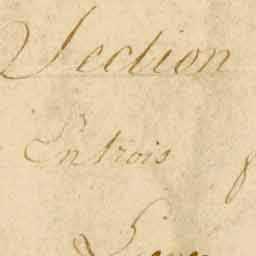 Section
En trois